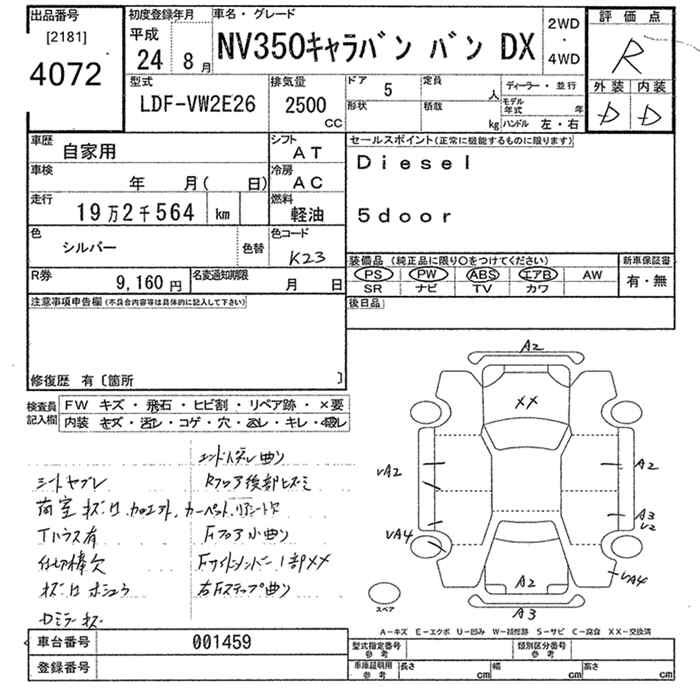 出品番号
[2181]
4072
初度登録年月
平成
24年 8月
車名・グレード
NV350キャラバン バン DX
2WD
・
4WD
評価点
R
外装 内装
D D
型式
LDF-VW2E26
排気量
2500
CC
ドア 5
定員 人
ディーラー・並行
形状
積載 kg
モデル年式 年
ハンドル 左・右
車歴 自家用
シフト AT
車検 年 月( 日)
冷房 AC
走行 19万2千564 km
燃料 軽油
色 シルバー
色替
色コード K23
R券 9,160円
名変通知期限 月 日
セールスポイント(正常に機能するものに限ります)
Diesel
5door
装備品(純正品に限り○をつけてください)
PS PW ABS エアB AW
SR ナビ TV カワ
新車保証書
有・無
後日品
注意事項申告欄(不具合内容等は具体的に記入して下さい)
修復歴 有〔箇所 〕
検査員記入欄
FW キズ・飛石・ヒビ割・リペア跡・×要
内装 キズ・汚レ・コゲ・穴・ムレ・キレ・
シートヤブレ
荷室
Tハウス有
Dミラーキズ
Rフロア後部
Fフロア小曲り
右Fステップ曲り
A2
XX
VA2
A2
A3
V2
VA4
VA4
A2
A3
スペア
A-キズ E-エクボ U-凹ミ W-補修跡 S-サビ C-腐食 XX-交換済
車台番号 001459
登録番号
型式指定番号 参考
類別区分番号 参考
車庫証明用 参考
長さ cm
幅 cm
高さ cm